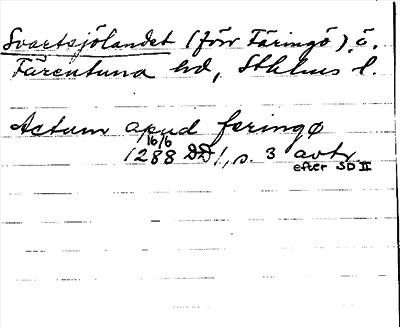 Svartsjölandet (förr Färingö), ö.
Färentuna hd, Sthlms l.
Actum apud feringø
16/6
1288 DD 1, s. 3 avtr
efter SD II